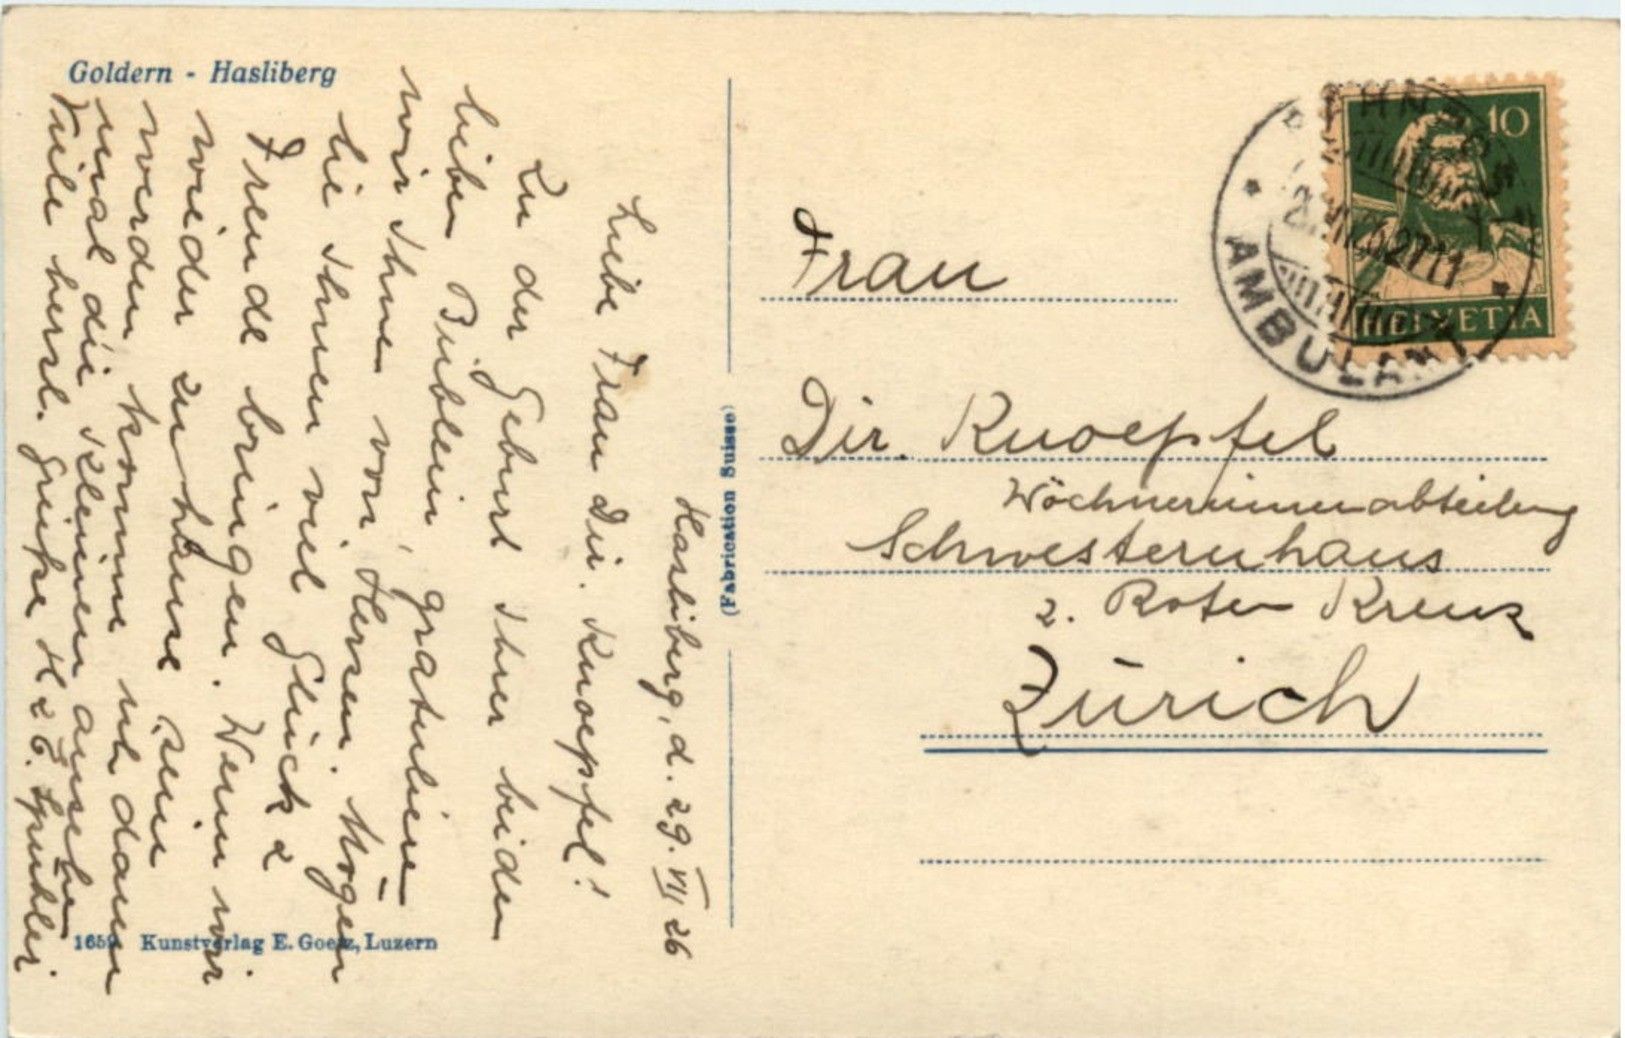 Goldern - Hasliberg
Hasliberg, d. 29. VII 26
Liebe Frau Dir. Knoepfel!
Zu der Geburt Ihrer beiden
lieben Büblein, gratulieren
wir Ihnen von Herzen. Mögen
sie Ihnen viel Glück &
Freude bringen. Wenn wir
wieder zu hause sein
werden komme ich dann
mal die Kleinen ansehen
Viele herzl. Grüße H & E.
1659 Kunstverlag E. Goetz, Luzern
(Fabrication Suisse)
10
HELVETIA
AMBULANT
Frau
Dir. Knoepfel
Wöchnerinnenabteilung
Schwesternhaus
z. Roten Kreuz
Zürich